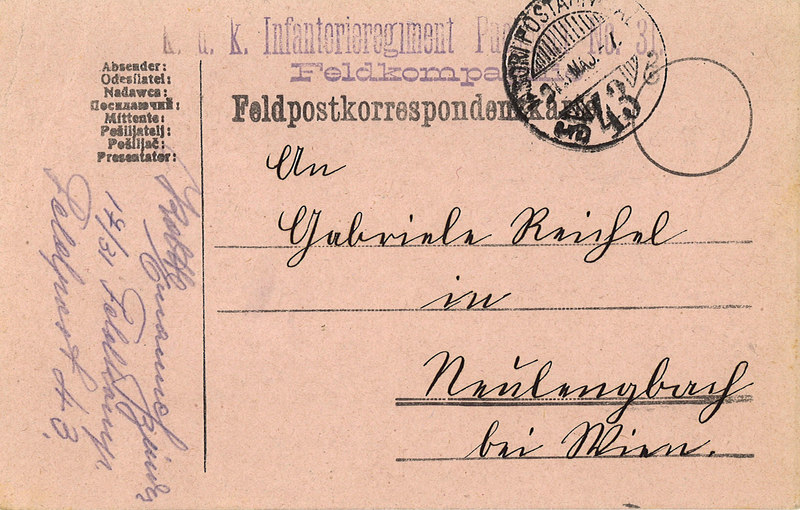 k. u. k. Infanterieregiment No. 31
Feldkompa
Feldpostkorrespondenzkarte
43
Absender:
Odesílatel:
Nadawca:
Посилаючий:
Mittente:
Pošiljatelj:
Pošiljač:
Presentator:
An
Gabriele Reichel
in
Neulengbach
bei Wien.
14/31 Feldkomp
Feldpost 43.